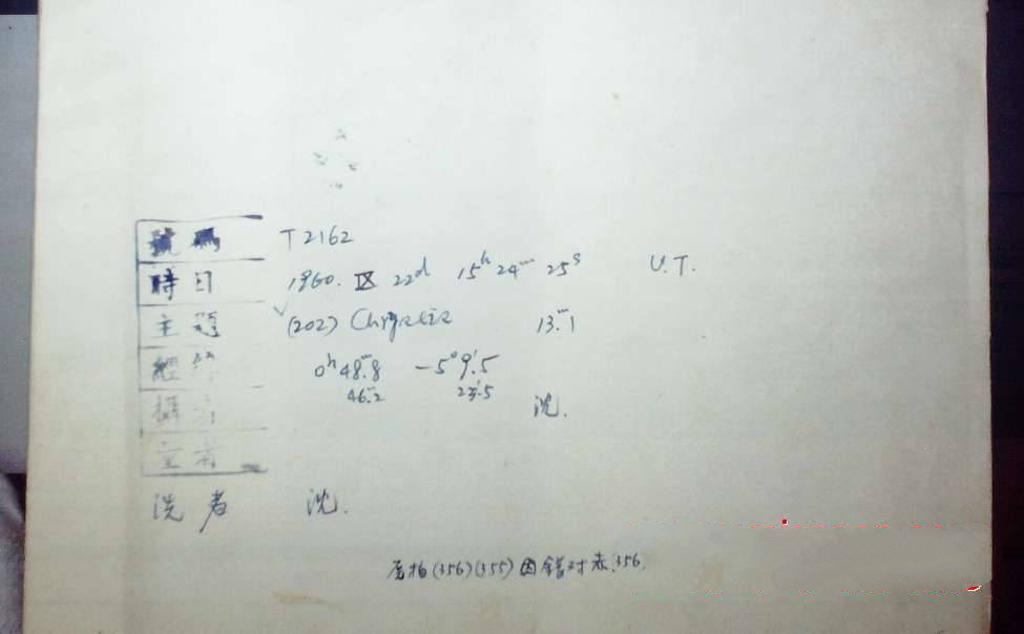 號碼 T 2162
時日 1960. IX 22d 15h 24m 25s U.T.
主題 √ (202) Chryseis 13.m1
經緯 0h48.m8 -5°9.'5
46.m2 23.'5
攝 沈.
洗者 沈.
(356)(355)因錯对赤356.